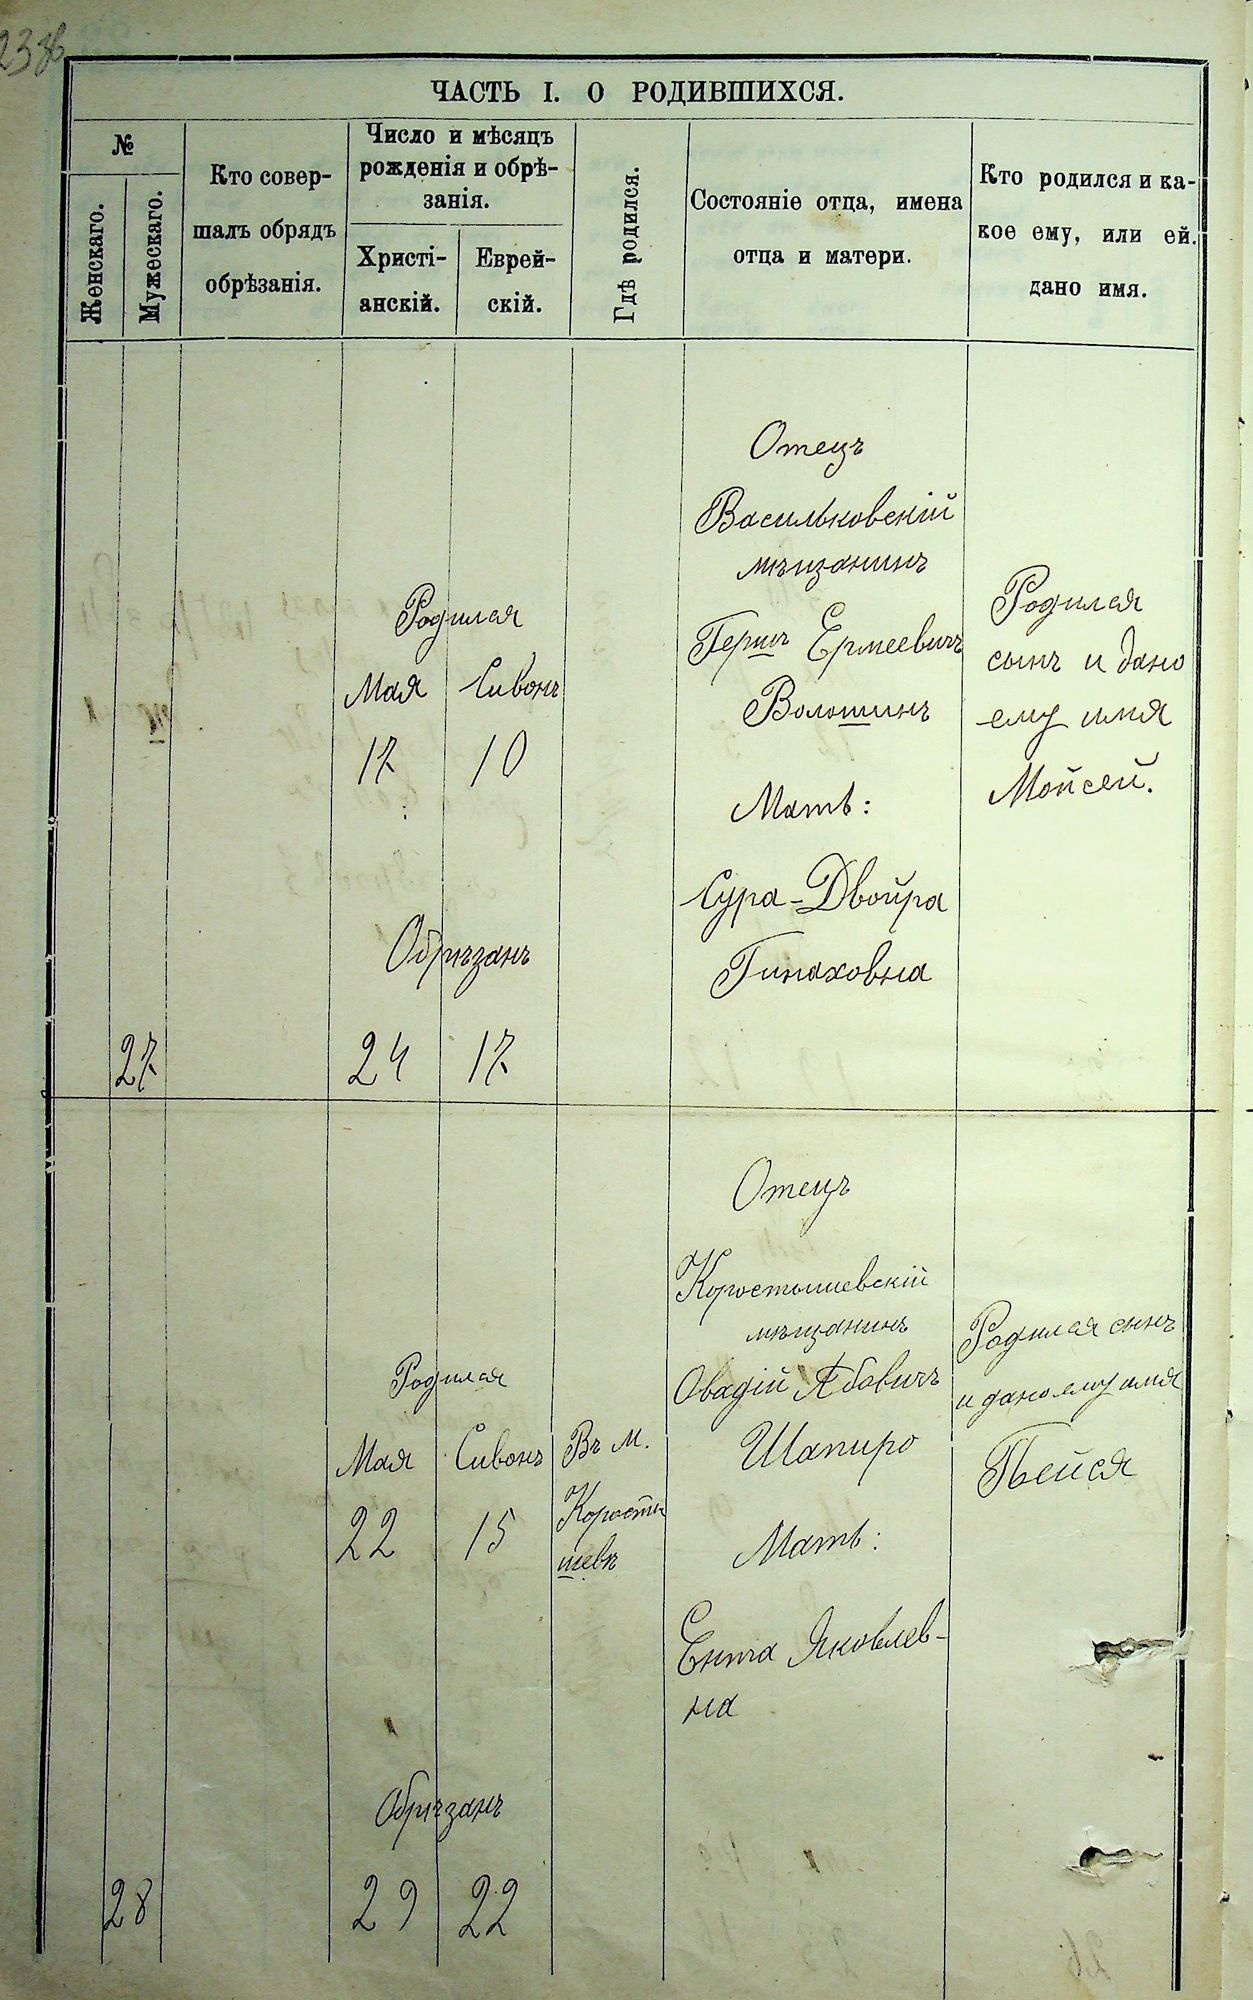 ЧАСТЬ I. О РОДИВШИХСЯ.
№
Женскаго.
Мужескаго.
Кто совер-
шалъ обрядъ
обрѣзанія.
Число и мѣсяцъ
рожденія и обрѣ-
занія.
Христі-
анскій.
Еврей-
скій.
Гдѣ родился.
Состояніе отца, имена
отца и матери.
Кто родился и ка-
кое ему, или ей.
дано имя.
27
Родился
Мая Сивонъ
17 10
Обрѣзанъ
24 17
Отецъ
Васильковскій
мѣщанинъ
Гершъ Ермеевичъ
Волошинъ
Мать:
Сура-Двойра
Пинаховна
Родился
сынъ и дано
ему имя
Мойсей.
28
Родился
Мая Сивонъ
22 15
Обрѣзанъ
29 22
Въ м.
Коросты
шевѣ
Отецъ
Коростышевскій
мѣщанинъ
Овадій Абовичъ
Шапиро
Мать:
Ента Яковлев-
на
Родился сынъ
и дано ему имя
Пейся